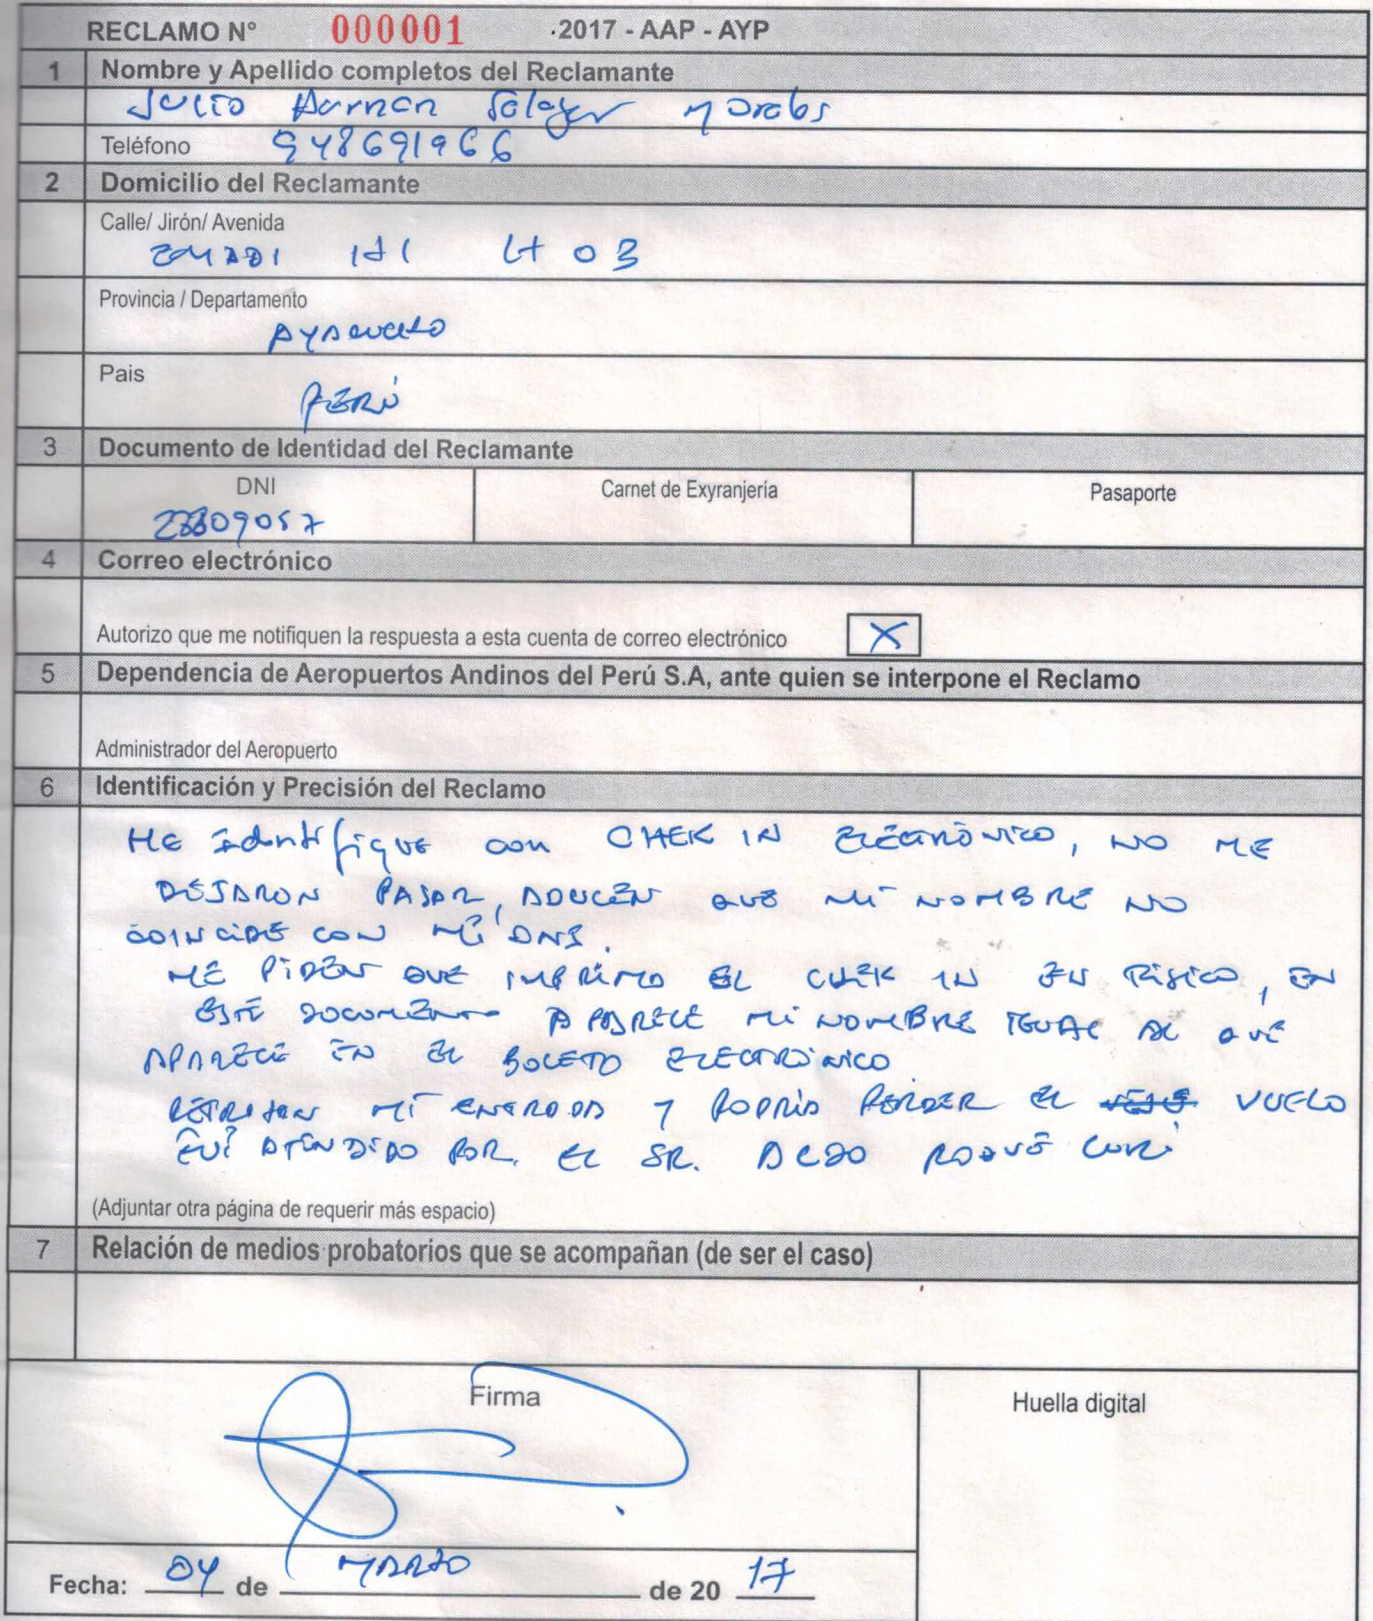 RECLAMO N° 000001 .2017 - AAP - AYP
1 Nombre y Apellido completos del Reclamante
Julio Hernan Salazar Morales
Teléfono 948691966
2 Domicilio del Reclamante
Calle/ Jirón/ Avenida
Lt 03
Provincia / Departamento
AYACUCHO
Pais
PERÚ
3 Documento de Identidad del Reclamante
DNI Carnet de Exyranjería Pasaporte
4 Correo electrónico
Autorizo que me notifiquen la respuesta a esta cuenta de correo electrónico X
5 Dependencia de Aeropuertos Andinos del Perú S.A, ante quien se interpone el Reclamo
Administrador del Aeropuerto
6 Identificación y Precisión del Reclamo
ME Identifique con CHEK IN ELÉCTRÓNICO, NO ME
DEJARON PASAR, ADUCEN QUE MI NOMBRE NO
COINCIDE CON MI DNI.
ME PIDEN QUE IMPRIMA EL CHEK IN EN FISICO, EN
ESTE DOCUMENTO APARECE MI NOMBRE IGUAL AL QUE
APARECE EN EL BOLETO ELECTRÓNICO
RETRASAN MI ENTRADA Y PODRIA PERDER EL VUELO
FUI ATENDIDO POR EL SR. ROQUE
(Adjuntar otra página de requerir más espacio)
7 Relación de medios probatorios que se acompañan (de ser el caso)
Firma Huella digital
Fecha: 04 de MARZO de 20 17